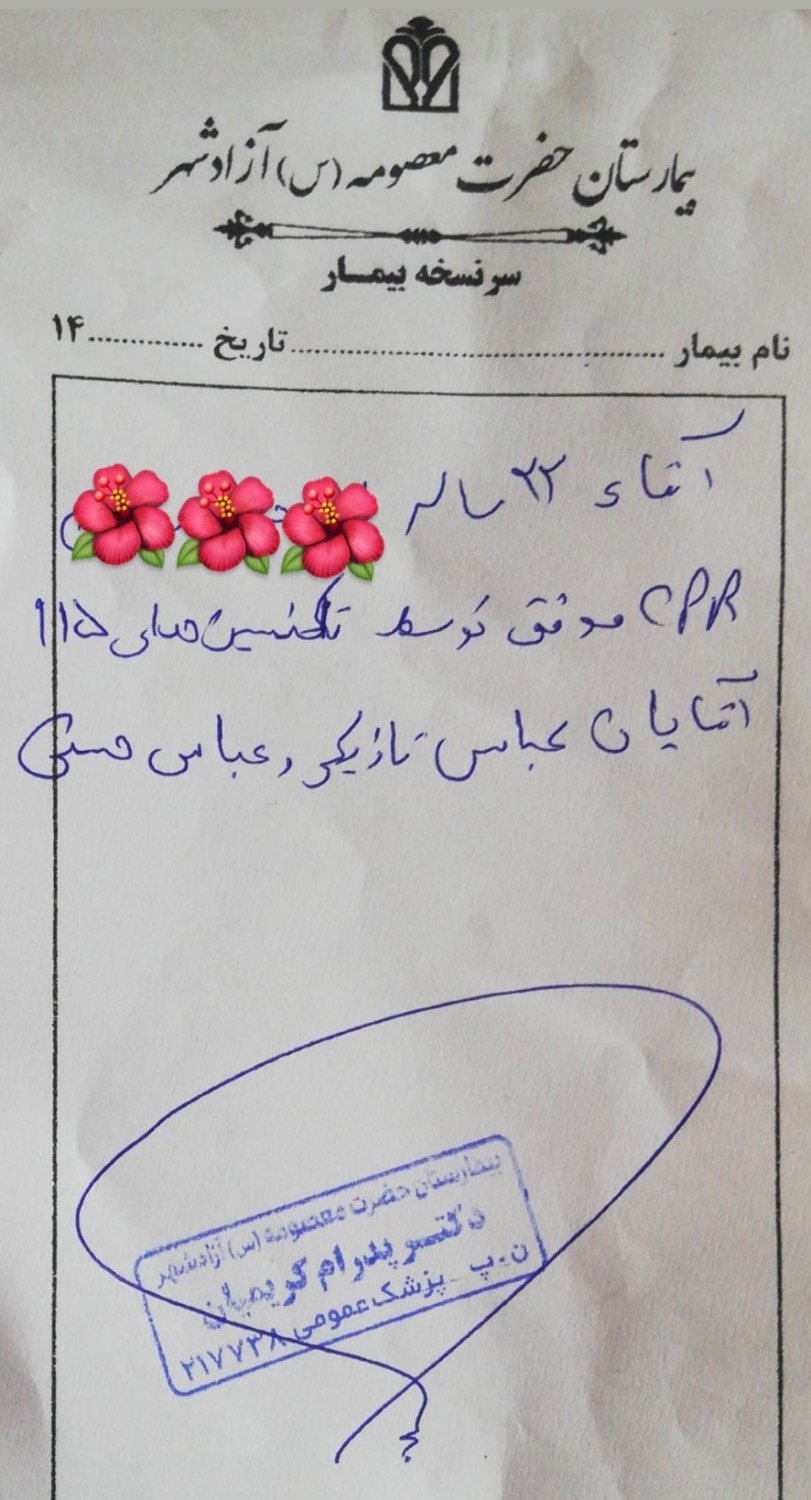 بیمارستان حضرت معصومه (س) آزادشهر
سرنسخه بیمـــار
نام بیمار ............................................ تاریخ .............. ۱۴
آقاء ۲۲ ساله
CPR موفق توسط تکنسین های ۱۱۵
آقایان عباس نازیکی و عباس حسنی
بیمارستان حضرت معصومه (س) آزادشهر
دکتر پدرام کریمیان
ن.پ پزشک عمومی ۲۱۷۷۳۸